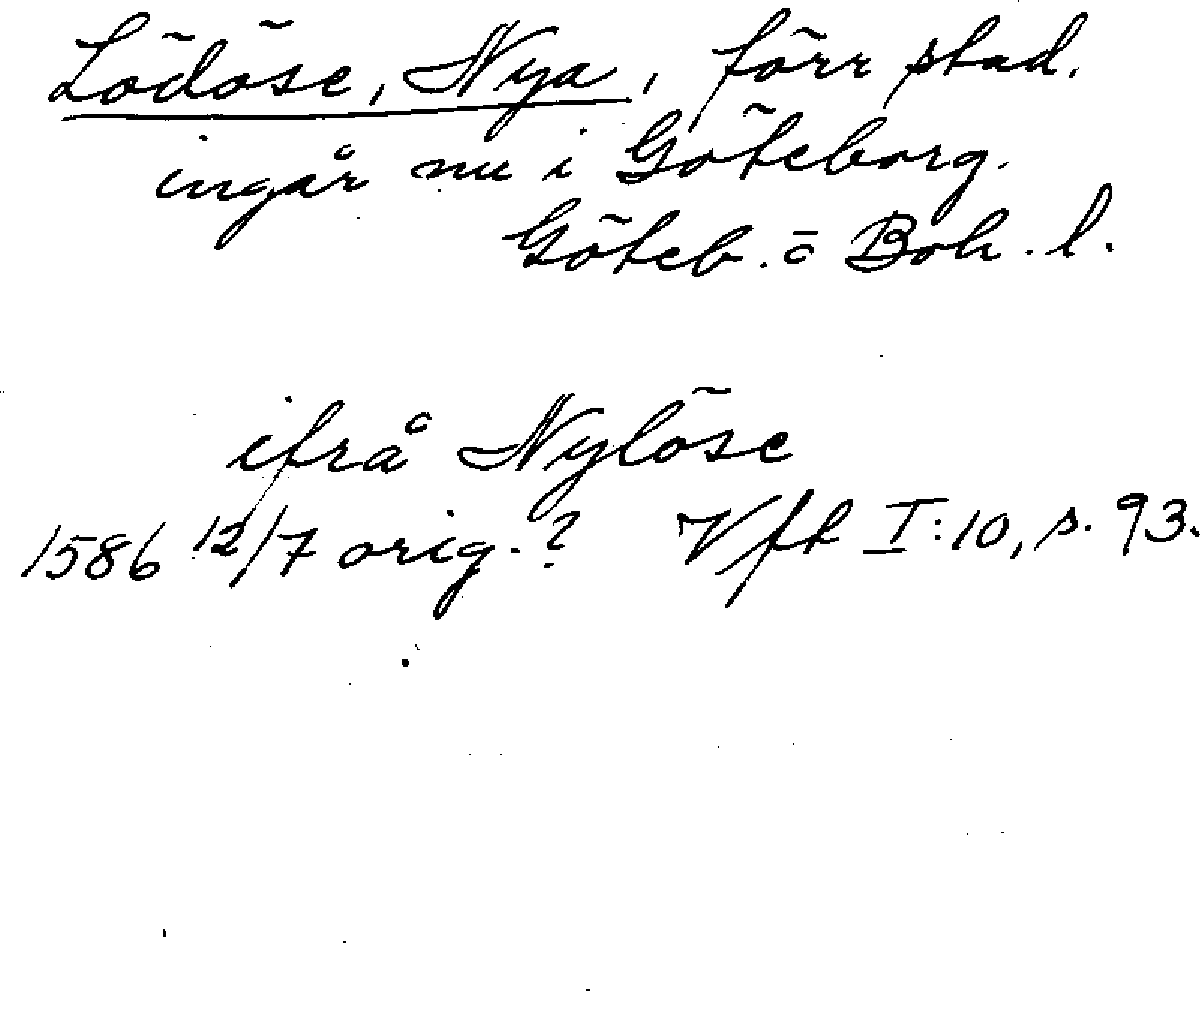 Lödöse, Nya, förr stad.
ingår nu i Göteborg.
Göteb. o Boh. l.
ifrå Nylöse
1586 12/7 orig.? Vfl I:10, s. 93.